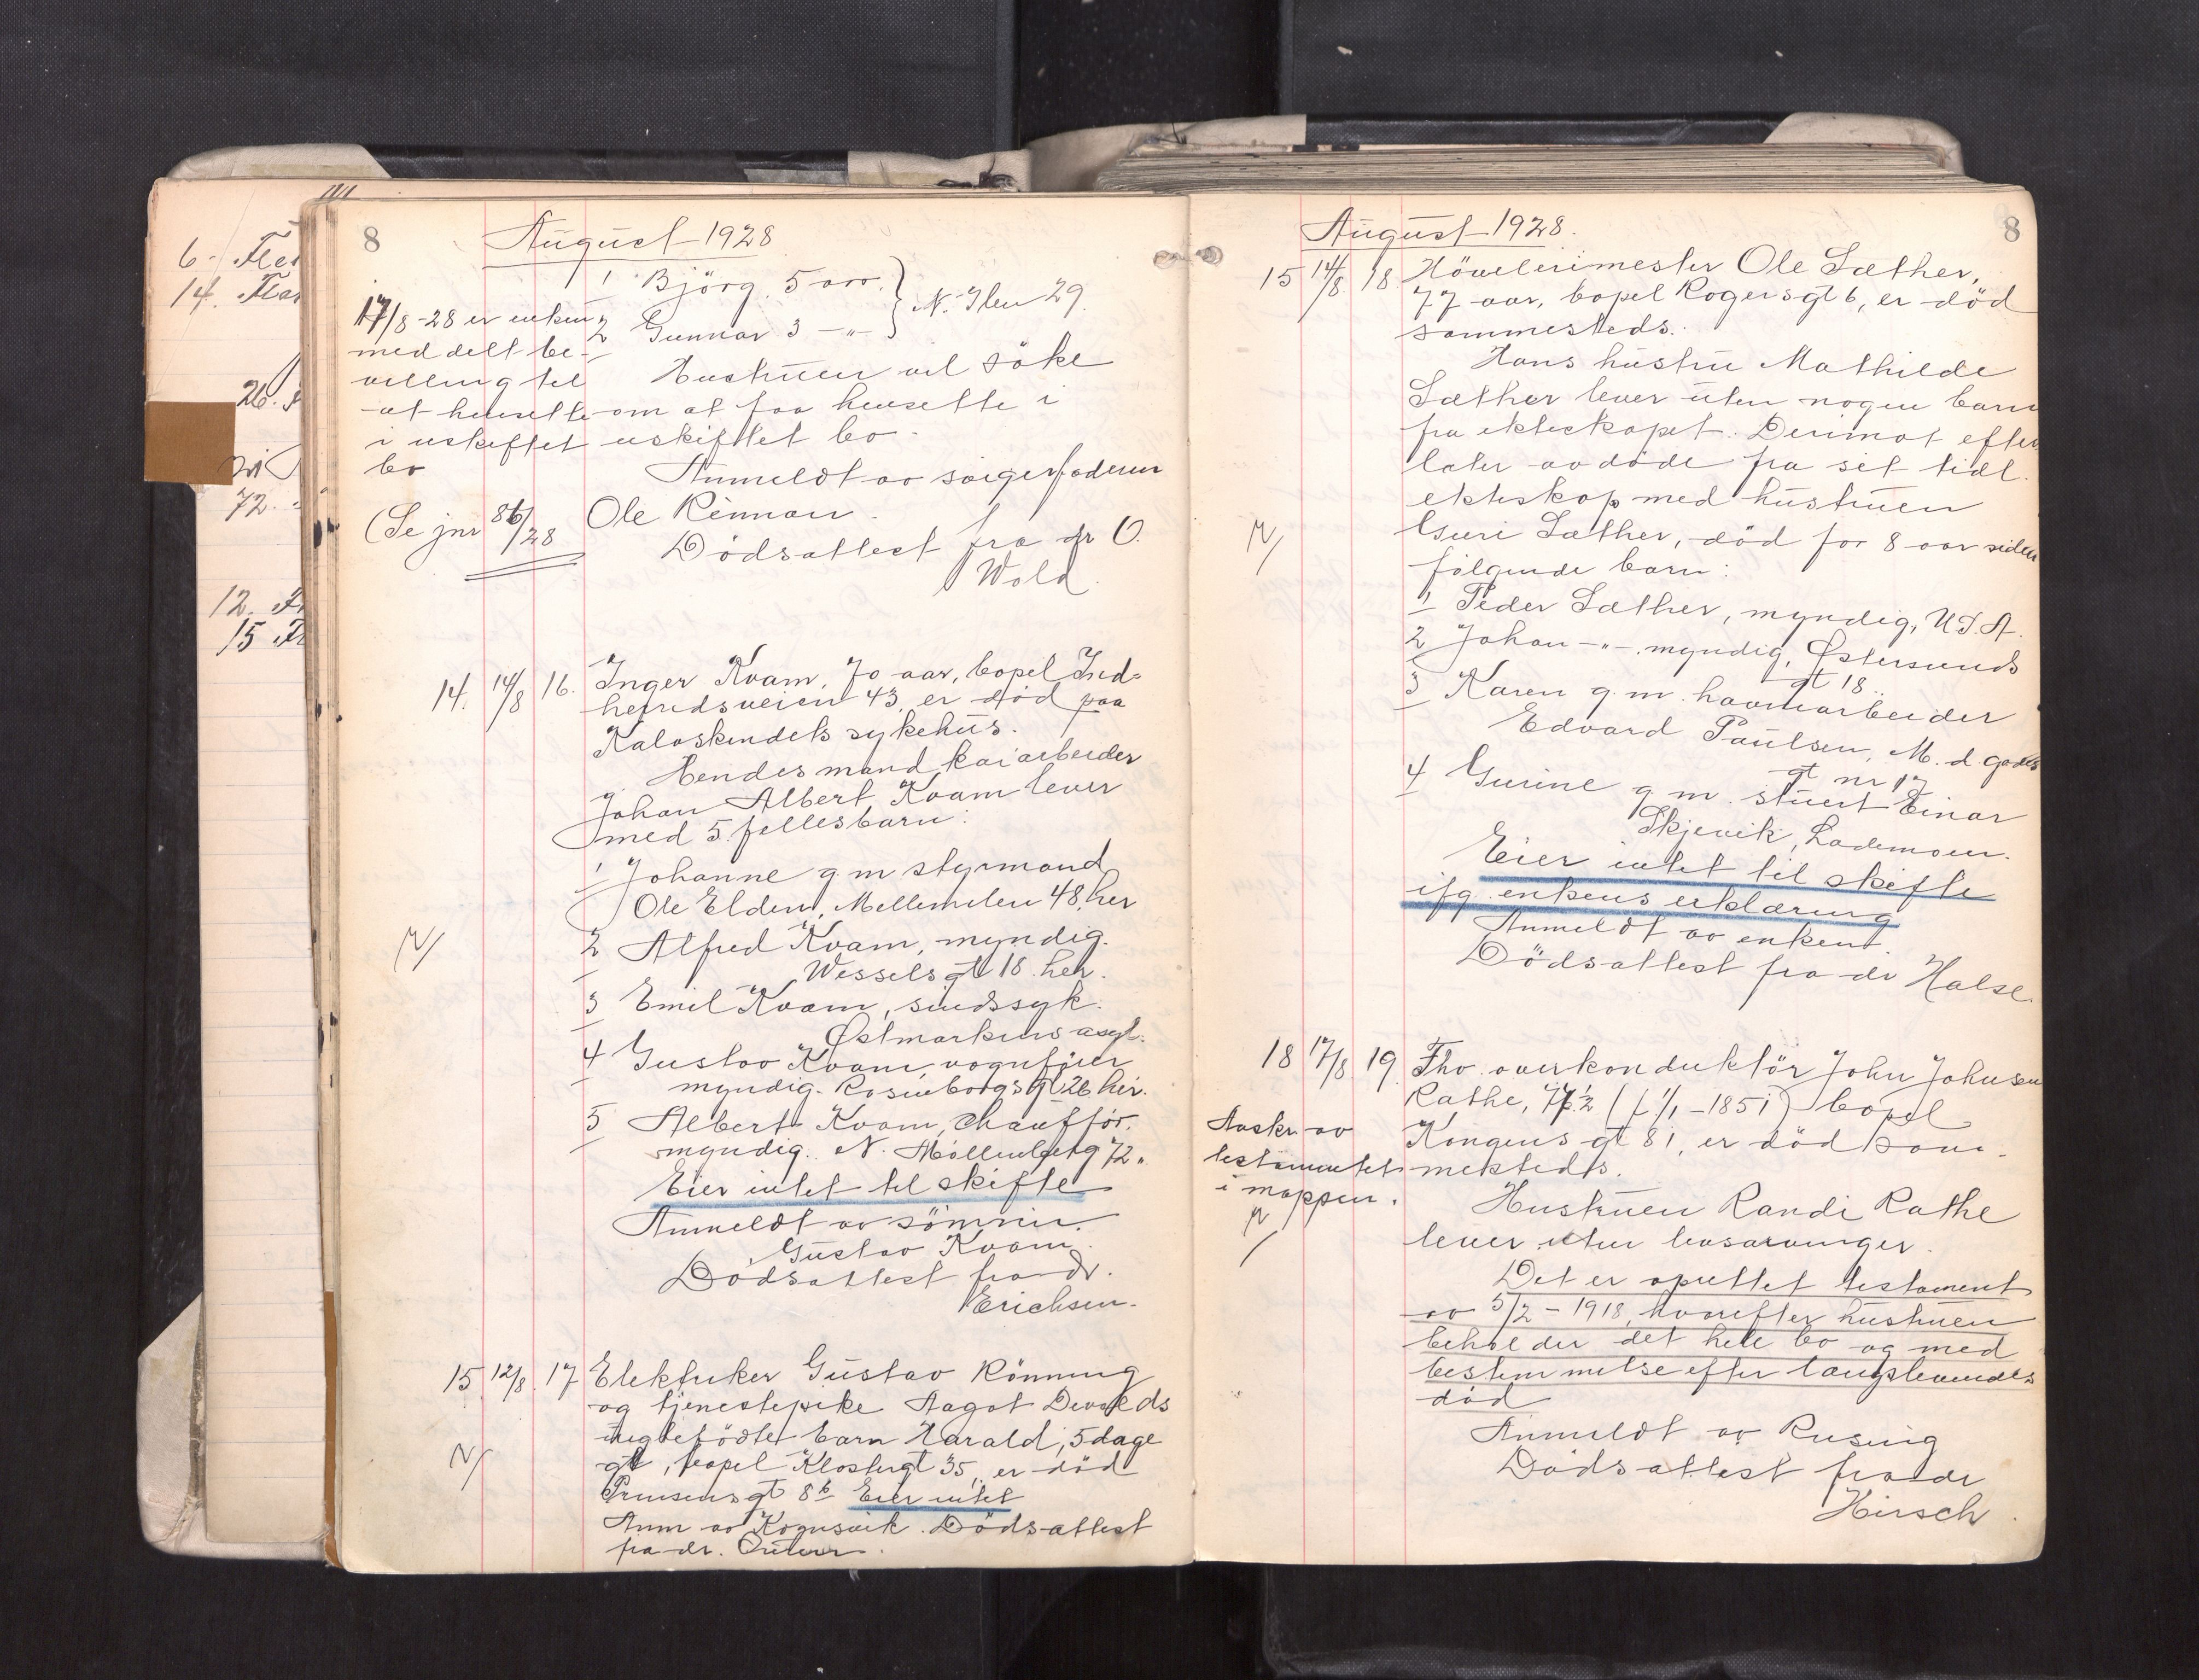 6 -
14.
26.
72.
12.
15
8
August 1928
1 Björg. 5 aar.
2 Gunnar 3 -"-
N. Ilen 29.
17/8-28 er enken
meddelt be-
villing til
at hensitte
i uskiftet
bo
(Se jnr 86/28
Hustruen vil söke
om at faa hensitte i
uskiftet bo.
Anmeldt av svigerfaderen
Ole Rennan.
Dödsattest fra dr O.
Wold.
14. 14/8 16. Inger Kvam, 70 aar, bopel Ind-
herredsveien 43, er död paa
Kalvskindets sykehus.
Hendes mand kaiarbeider
Johan Albert Kvam lever
med 5 fellesbarn:
1 Johanne g m styrmand
Ole Elden, Mellemilen 48, her
2 Alfred Kvam, myndig.
Wessels gt 18 her.
3 Emil Kvam, sindssyk.
Østmarkens asyl.
4 Gustav Kvam, vognförer
myndig. Rosenborgs gt 26 her.
5 Albert Kvam, chaufför.
myndig. N. Möllenberg 72 "
Eier intet til skifte
Anmeldt av sönnen.
Gustav Kvam.
Dödsattest fra dr.
Erichsen.
15. 12/8. 17 Elektriker Gustav Rönning
og tjenestepike Aagot Devolds
uegtefödte barn Harald, 5 dage
gl, bopel Klostergt 35, er död
Prinsens gt 8b Eier intet
Anm av Kornsvik. Dödsattest
fra dr.
August 1928.
8
15 14/8. 18. Hövelerimester Ole Sæther,
77 aar, bopel Rogersgt 6, er död
sammesteds.
Hans hustru Mathilde
Sæther lever uten nogen barn
fra ekteskapet. Derimot efter
later avdöde fra sit tidl.
ekteskap med hustruen
Guri Sæther, död for 8 aar siden
fölgende barn:
1 Peder Sæther, myndig, U.S.A.
2 Johan -"- myndig, Østersunds
gt 18.
3 Karen g. m. havnearbeider
Edvard Paulsen, M. d. godes
gt nr 17
4 Gurine g m. stuert Einar
Skjevik, Lademoen.
Eier intet til skifte
ifg. enkens erklæring
Anmeldt av enken.
Dödsattest fra dr Halse.
18 17/8 19. Fhv. overkonduktör John Johnsen
Rathe, 77 1/2 (f. 1/1 - 1851) bopel
Kongens gt 81, er död sam-
mesteds.
Avskr. av
testamentet
i mappen.
Hustruen Randi Rathe
lever uten livsarvinger.
Det er oprettet testament
av 5/2 - 1918, hvorefter hustruen
beholder det hele bo og med
bestemmelse efter lengstlevendes
död
Anmeldt av Rusing
Dödsattest fra dr
Hirsch.